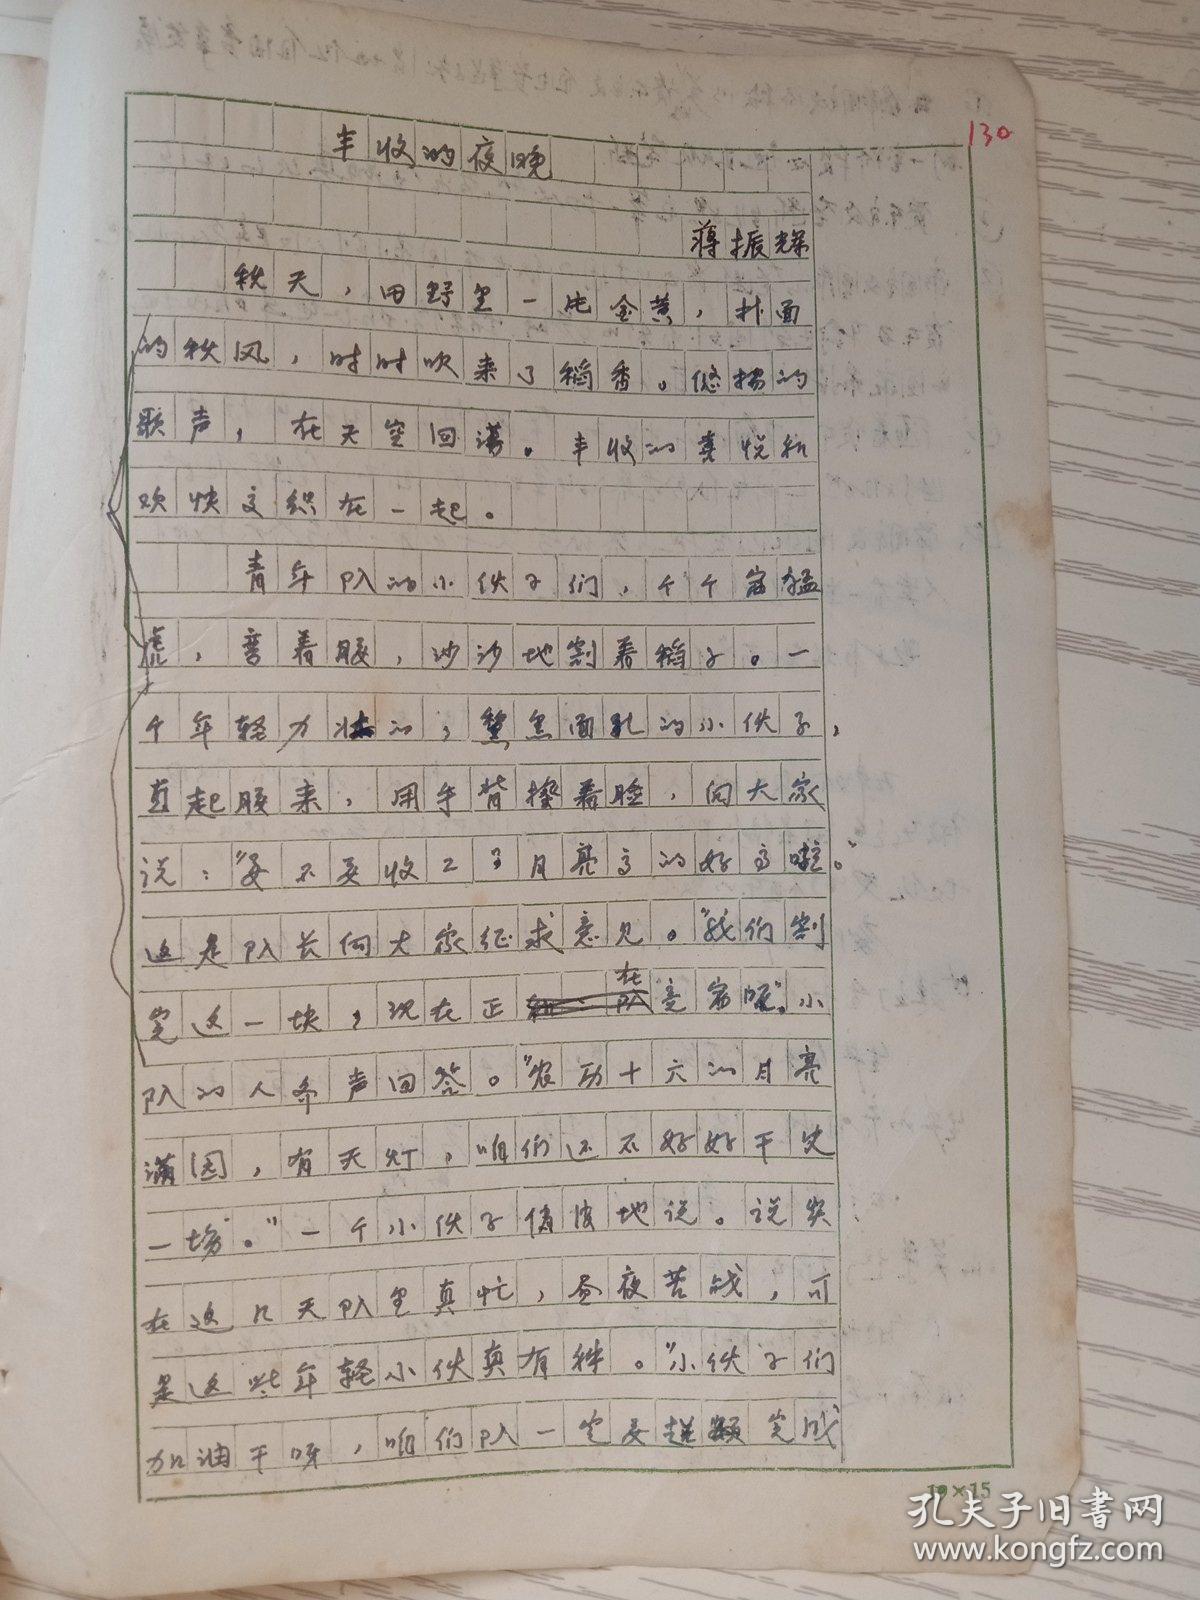 130
丰收的夜晚
蒋振辉
秋天，田野里一片金黄，扑面
的秋风，时时吹来了稻香。悠扬的
歌声，在天空回荡。丰收的喜悦和
欢快交织在一起。
青年队的小伙子们，个个富猛
虎，弯着腰，沙沙地割着稻子。一
个年轻力壮的，黧黑面孔的小伙子，
直起腰来，用手背擦着脸，向大家
说：“要不要收工？月亮高的好高啦。”
这是队长向大家征求意见。“我们割
完这一块，现在正在亮富呢”。小
队的人齐声回答。“农历十六的月亮
满园，有天灯，咱们还不好好干它
一场。”一个小伙子俏皮地说。说实
在这几天队里真忙，昼夜苦战，可
是这些年轻小伙真有种。“小伙子们
加油干呀，咱们队一定要超额完成
10×15
孔夫子旧书网
www.kongfz.com